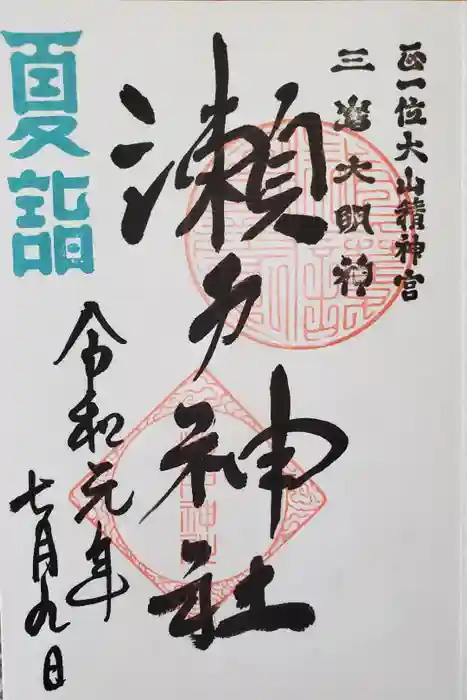 正一位大山積神宮
三嶋大明神
瀬戸神社
夏詣
令和元年
七月九日